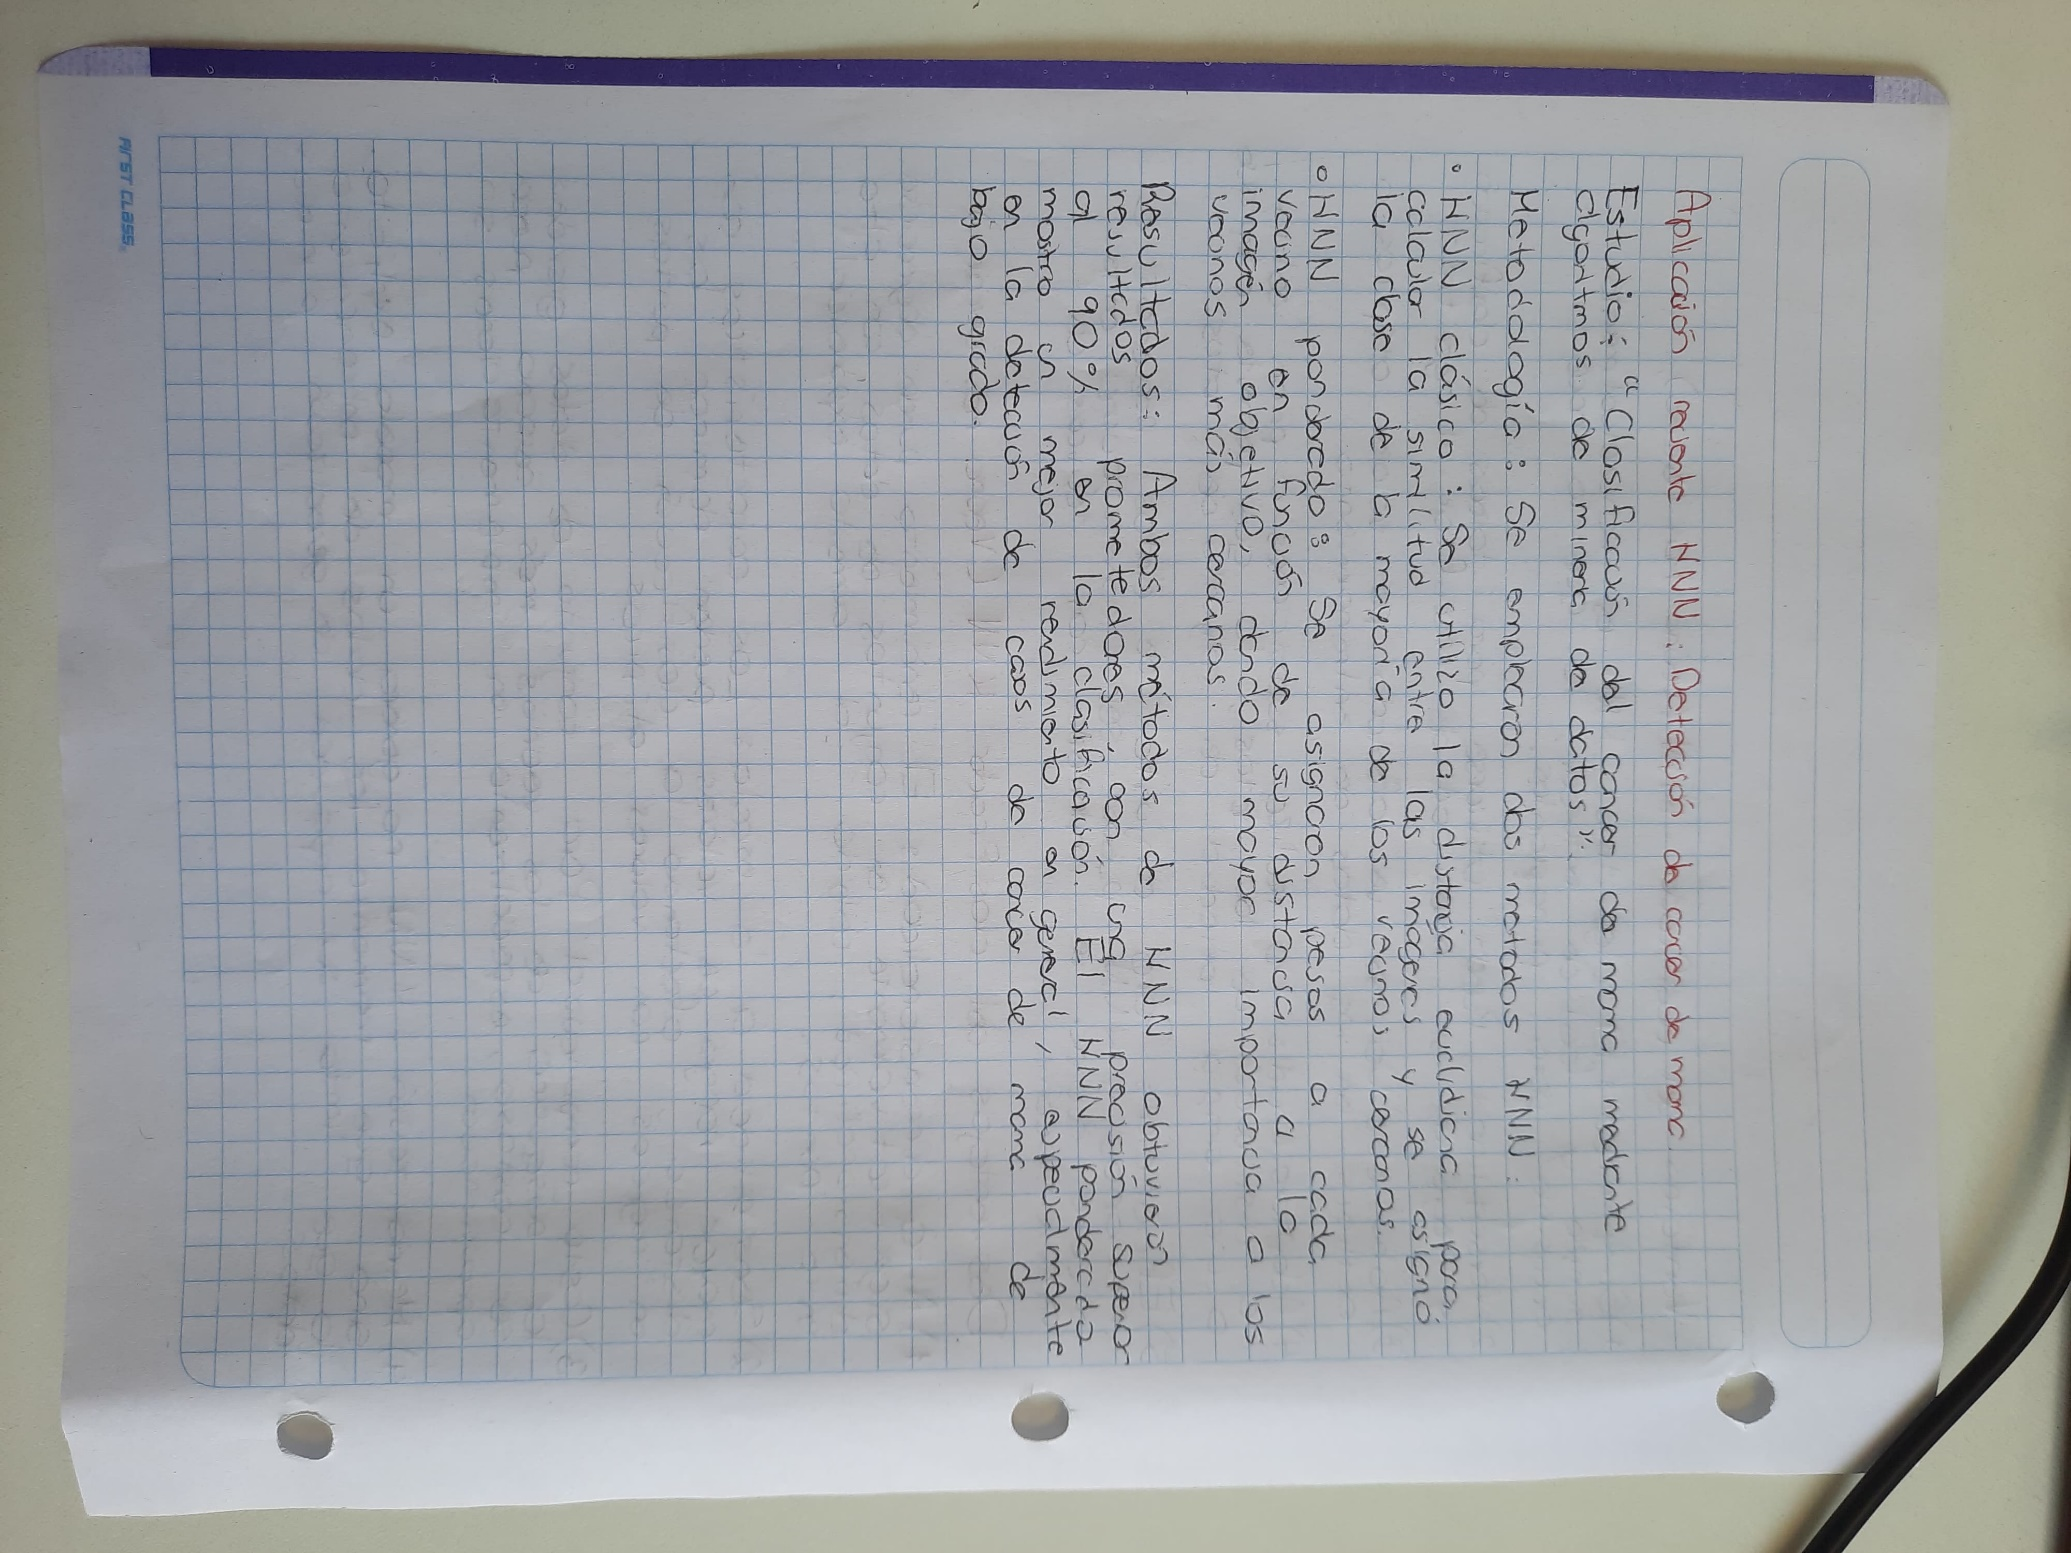 Aplicación reciente KNN: Detección de cancer de mama
Estudio: "Clasificación del cancer de mama mediante
algoritmos de mineria de datos".
Metodología: Se emplearon dos metodos KNN:
• KNN clásico: Se utilizo la distancia euclidiena para
calcular la similitud entre las imágenes y se asignó
la clase de la mayoría de los vecinos cercanos.
• KNN ponderado: Se asignaron pesos a cada
vecino en función de su distancia a la
imagén objetivo, dando mayor importancia a los
vecinos más cercanos.
Resultados: Ambos métodos de KNN obtuvieron
resultados prometedores, con una precisión superior
al 90% en la clasificación. El KNN ponderado
mostro un mejor rendimiento en general, especialmente
en la detección de casos de cancer de mama de
bajo grado.
Arst class.